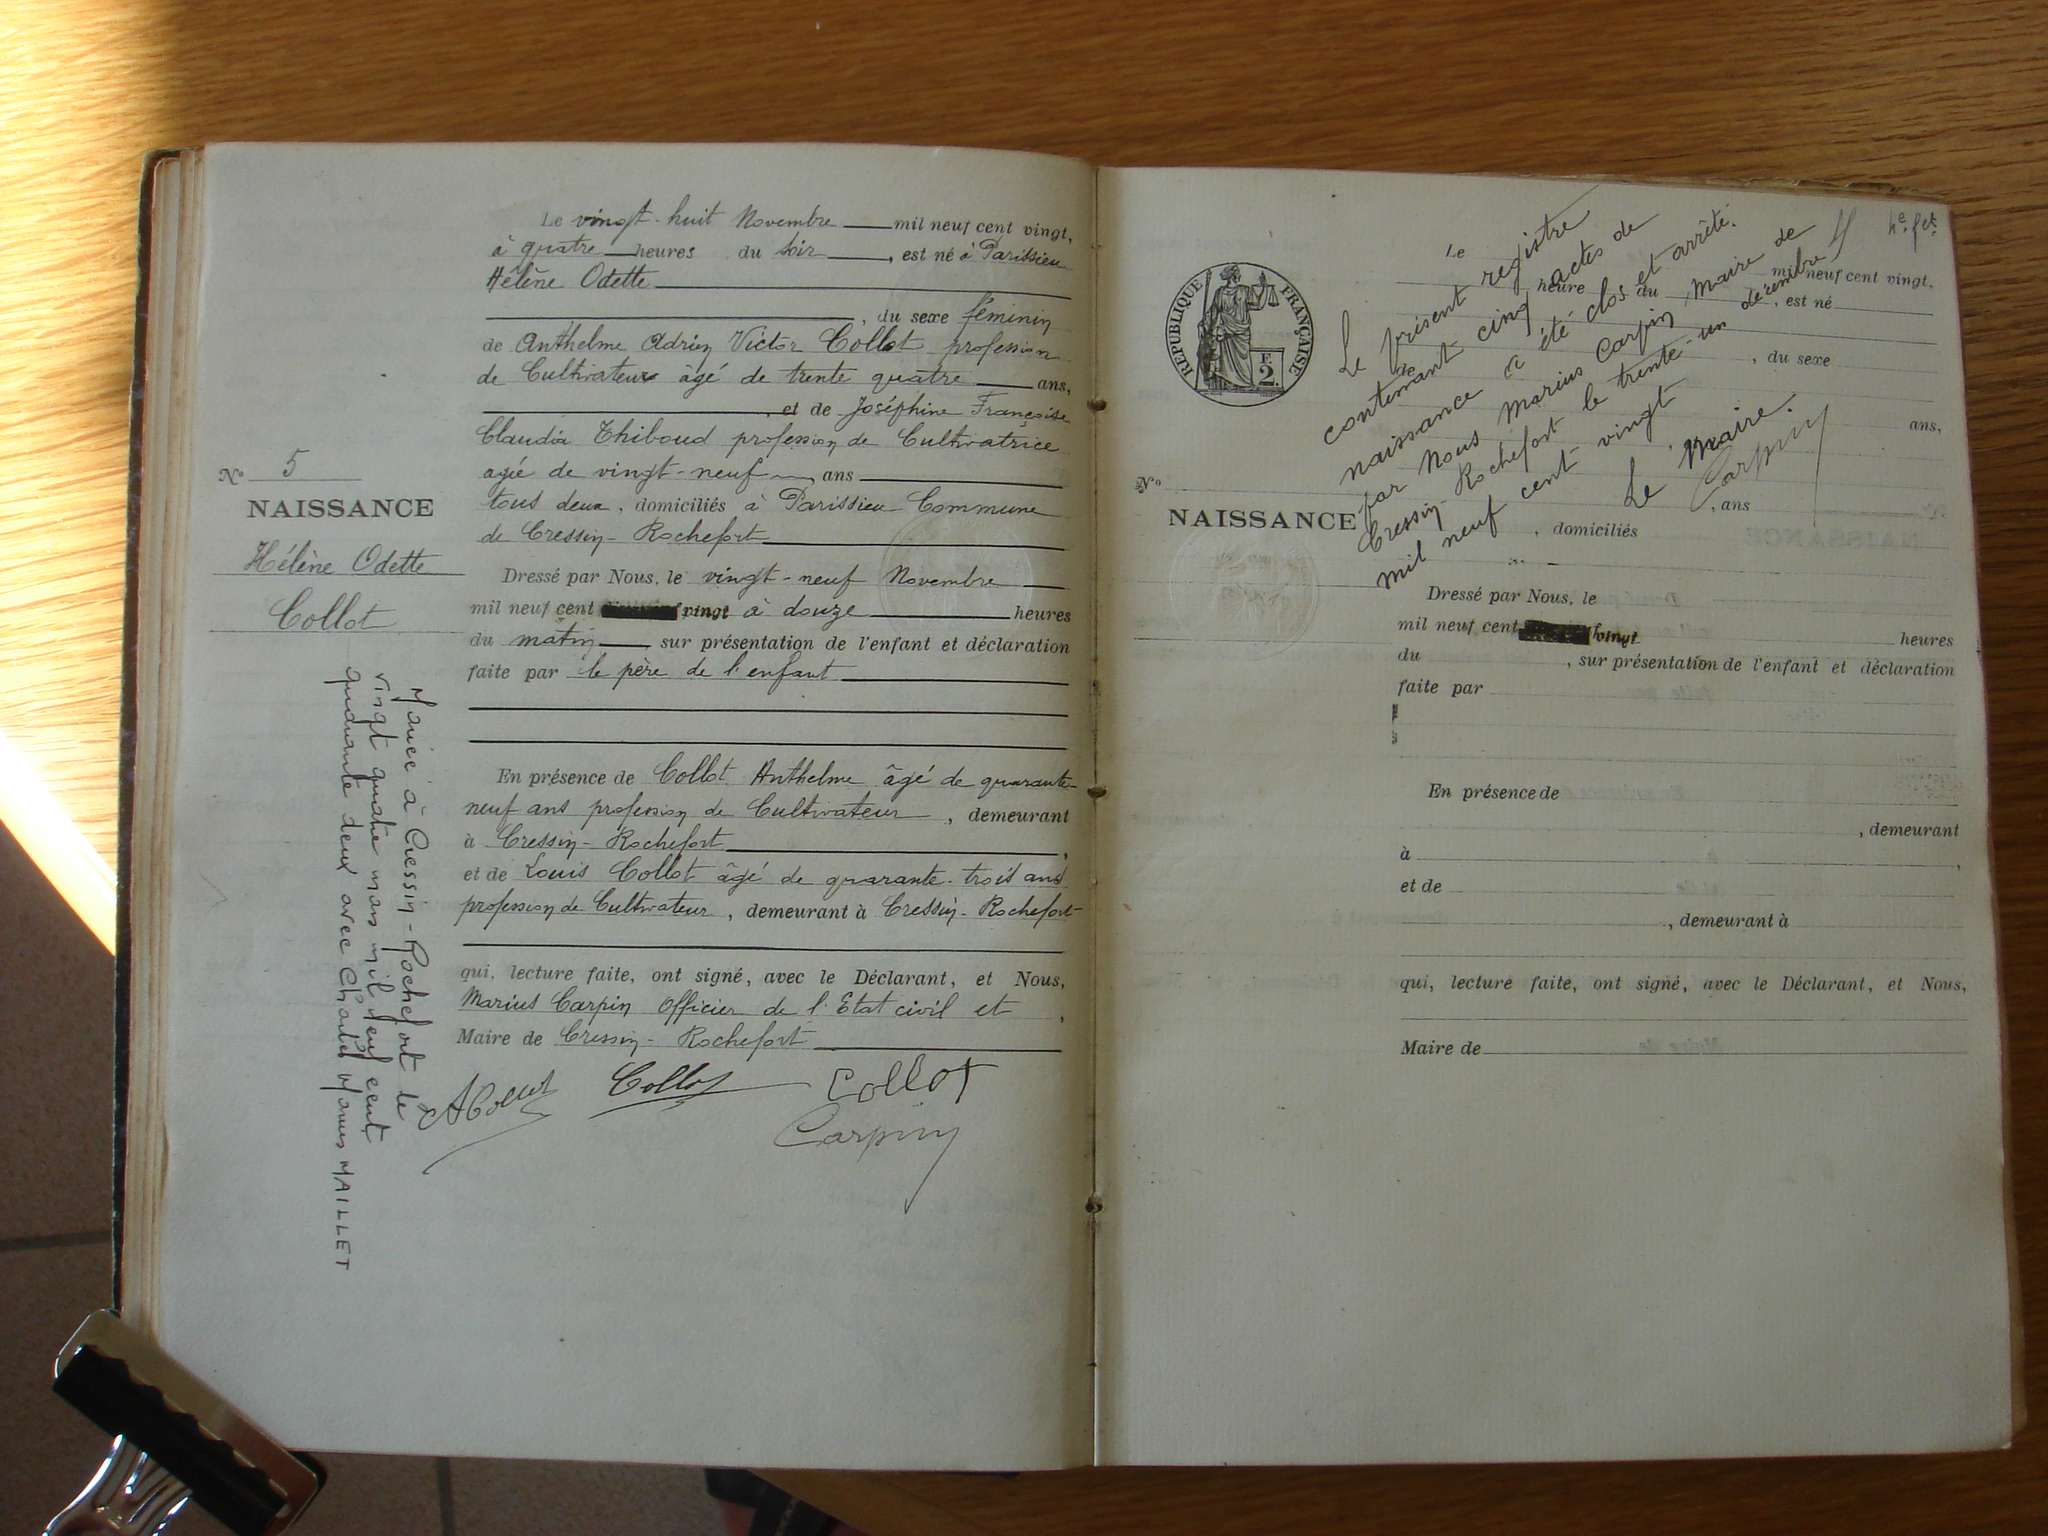 Le vingt-huit Novembre mil neuf cent vingt,
à quatre heures du soir, est né à Parissieu
Hélène Odette
, du sexe féminin
de Anthelme Adrien Victor Collot profession
de Cultivateur âgé de trente quatre ans,
, et de Joséphine Françoise
Claudia Thiboud profession de Cultivatrice
agée de vingt-neuf ans
tous deux, domiciliés à Parissieu Commune
de Cressin-Rochefort
Nº 5
NAISSANCE
Hélène Odette
Collot
Dressé par Nous, le vingt-neuf Novembre
mil neuf cent vingt à douze heures
du matin sur présentation de l'enfant et déclaration
faite par le père de l'enfant
En présence de Collot Anthelme âgé de quarante-
neuf ans profession de Cultivateur, demeurant
à Cressin-Rochefort,
et de Louis Collot âgé de quarante-trois ans
profession de Cultivateur, demeurant à Cressin-Rochefort
qui, lecture faite, ont signé, avec le Déclarant, et Nous,
Marius Carpin Officier de l'Etat civil et,
Maire de Cressin-Rochefort
A Collot Collot Collot
Carpin
Mariée à Cressin-Rochefort le
vingt quatre mars mil neuf cent
quarante deux avec Charles Marius MAILLET
RÉPUBLIQUE FRANÇAISE
F.
2.
4
4e. fet.
Le présent registre
contenant cinq actes de
naissance a été clos et arrêté
par Nous Marius Carpin, Maire de
Cressin-Rochefort le trente-un décembre
mil neuf cent vingt
Le Maire.
Carpin
Le mil neuf cent vingt,
heure du, est né
de, du sexe
ans,
Nº
NAISSANCE
, ans
, domiciliés
Dressé par Nous, le
mil neuf cent vingt heures
du, sur présentation de l'enfant et déclaration
faite par
En présence de
, demeurant
à,
et de
, demeurant à
qui, lecture faite, ont signé, avec le Déclarant, et Nous,
Maire de